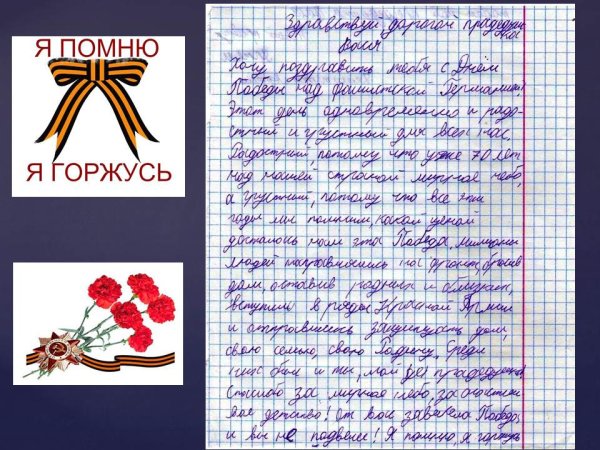 Я ПОМНЮ
Я ГОРЖУСЬ
Здравствуй дорогой прадедушка
Ваия
Хочу поздравить тебя с Днём
Победы над фашистской Германии!
Этот день одновременно и радо-
стный и грустный для всех нас,
Радостный, потому что уже 70 лет
над нашей страной мирное небо,
а грустный, потому что все эти
годы мы помним, какой ценой
досталось нам эта Победа, миллионы
людей направлялись на фронт, бросив
дом, оставив родных и близких,
вступили в ряды Красной Армии
и отправились защищать дом
свою семью, свою Родину. Среди
них был и ты, мой прадедушка
Спасибо за мирное небо, за счастли
вое детство! От вас зависела Победа
и вы не подвели! Я помню, я горжусь